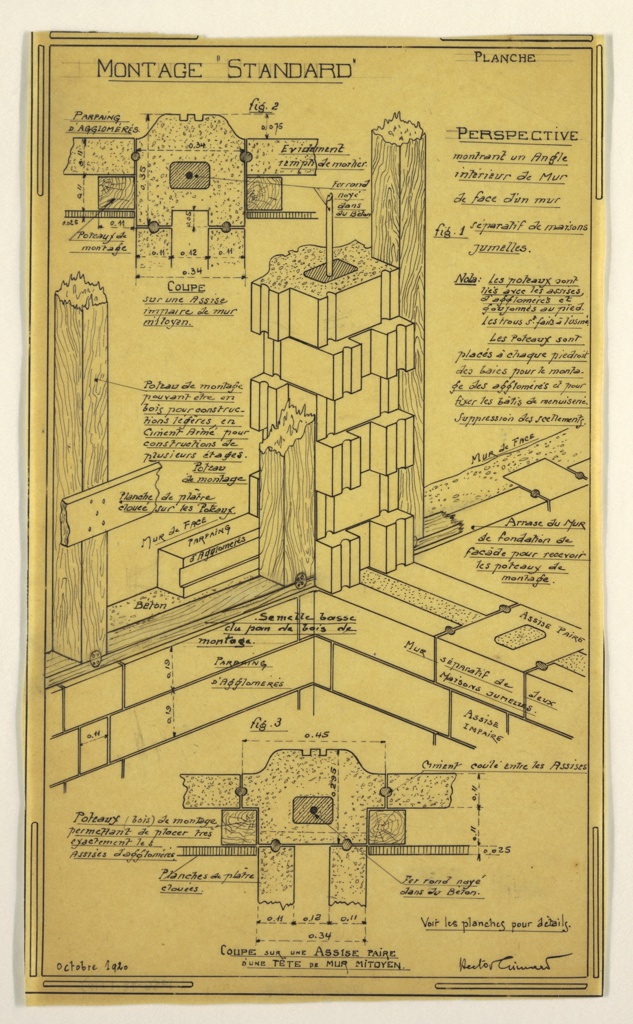 MONTAGE "STANDARD"
PLANCHE
fig. 2
PARPAING
D'AGGLOMÉRÉS
0.075
0.34
0.35
Evidement
rempli de mortier.
Fer rond
noyé
dans
du Béton
0.11
0.11
0.025
0.11
0.05
Poteaux de
montage
0.11
0.12
0.11
0.34
COUPE
sur une Assise
impaire de mur
mitoyen.
PERSPECTIVE
montrant un Angle
intérieur de Mur
de face d'un mur
fig. 1 séparatif de maisons
jumelles.
Nota: Les poteaux sont
liés avec les assises,
d'agglomérés et
goujonnés au pied.
Les trous st faits à l'usine
Les Poteaux sont
placés à chaque piedroit
des baies pour le monta-
ge des agglomérés et pour
fixer les bâtis de menuiserie.
Suppression des scellements.
Poteau de montage
pouvant être en
bois pour construc-
tions légères, en
Ciment Armé pour
constructions de
plusieurs étages.
Poteau
de montage
Planche de plâtre
clouée sur les Poteaux
MUR DE FACE
PARPAING
d'Agglomérés
Béton
MUR DE FACE
Arase du MUR
de fondation de
façade pour recevoir
les poteaux de
montage.
Semelle basse
du pan de bois de
montage.
ASSISE PAIRE
MUR
séparatif de deux
MAISONS JUMELLES.
ASSISE
IMPAIRE
PARPAING
D'AGGLOMÉRÉS
0.19
0.19
0.11
fig. 3
0.45
0.295
Ciment coulé entre les Assises
0.11
0.11
0.025
Poteaux (bois) de montage
permettant de placer très
exactement les
Assises d'agglomérés
Planches de plâtre
clouées.
Fer rond noyé
dans du Béton.
0.11
0.12
0.11
0.34
Voir les planches pour détails.
COUPE SUR UNE ASSISE PAIRE
D'UNE TÊTE DE MUR MITOYEN.
Octobre 1920
Hector Guimard